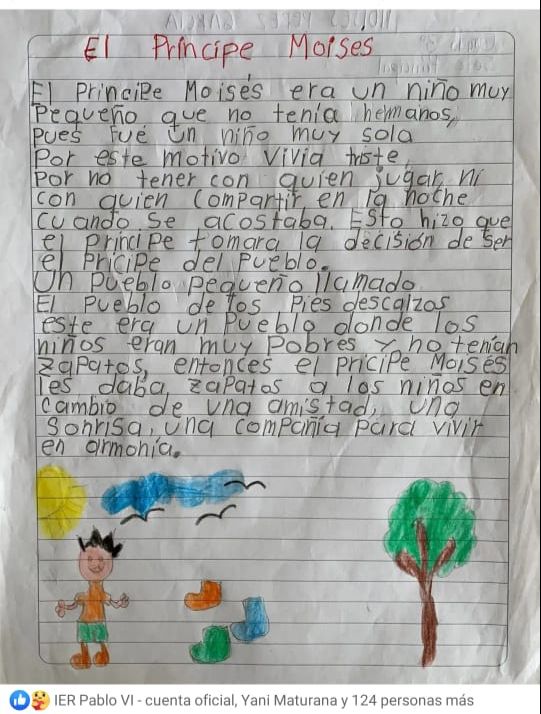 El Príncipe Moises
El PrinciPe Moisés era un niño muy
Pequeño que no tenía hemanos,
pues fue un niño muy sola
Por este motivo vivia triste,
Por no tener con quien jugar ni
con quien compartir en la noche
cuando se acostaba. Esto hizo que
el PrinciPe tomara la decisión de ser
el PriciPe del Pueblo.
Un Pueblo Pequeño llamado
El Pueblo de los Pies descalzos
este era un Pueblo donde los
niños eran muy Pobres y no tenian
zapatos, entonces el pricipe Moisés
les daba zapatos a los niños en
cambio de una amistad, una
sonrisa, una compañía para vivir
en armonía.
IER Pablo VI - cuenta oficial, Yani Maturana y 124 personas más